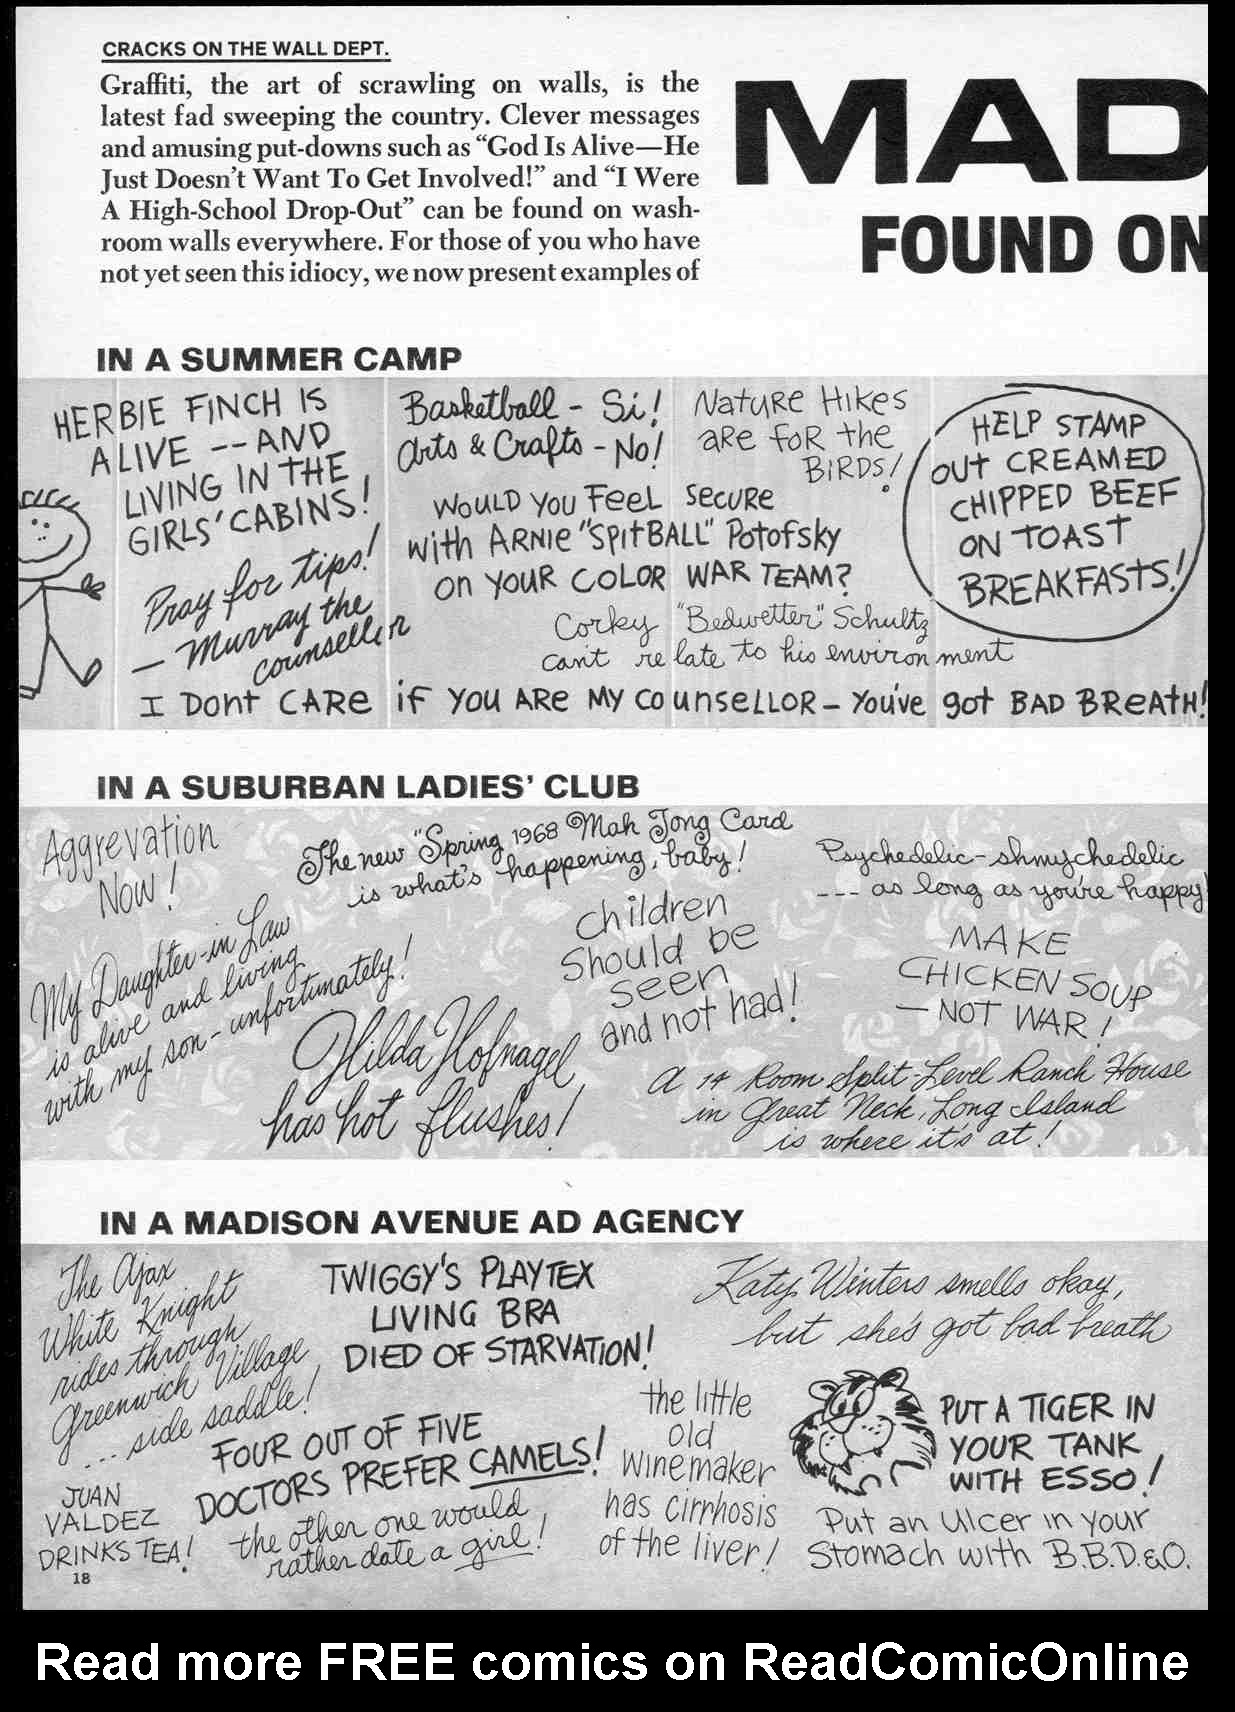 CRACKS ON THE WALL DEPT.
Graffiti, the art of scrawling on walls, is the
latest fad sweeping the country. Clever messages
and amusing put-downs such as “God Is Alive—He
Just Doesn’t Want To Get Involved!” and “I Were
A High-School Drop-Out” can be found on wash-
room walls everywhere. For those of you who have
not yet seen this idiocy, we now present examples of
MAD
FOUND ON
IN A SUMMER CAMP
HERBIE FINCH IS
ALIVE -- AND
LIVING IN THE
GIRLS' CABINS!
Pray for tips!
— Murray the
counsellor
Basketball - Si!
Arts & Crafts - No!
Nature Hikes
are for the
BIRDS!
Would you feel secure
with Arnie "Spitball" Potofsky
on your color war team?
Corky "Bedwetter" Schultz
can't relate to his environment
HELP STAMP
OUT CREAMED
CHIPPED BEEF
ON TOAST
BREAKFASTS!
I Dont Care if you are my counsellor — You've got BAD BREATH!
IN A SUBURBAN LADIES’ CLUB
Aggrevation
Now!
The new "Spring 1968 Mah Jong Card
is what's happening, baby!
Psychedelic-shmychedelic
--- as long as you're happy!
My Daughter-in Law
is alive and living
with my son - unfortunately!
Children
Should be
seen
and not had!
MAKE
CHICKEN SOUP
— NOT WAR!
Hilda Hofnagel
has hot flushes!
A 14 Room Split-Level Ranch House
in Great Neck, Long Island
is where it's at!
IN A MADISON AVENUE AD AGENCY
The Ajax
White Knight
rides through
Greenwich Village
... side saddle!
TWIGGY'S PLAYTEX
LIVING BRA
DIED OF STARVATION!
Katy Winters smells okay,
but she's got bad breath
FOUR OUT OF FIVE
DOCTORS PREFER CAMELS!
the other one would
rather date a girl!
JUAN
VALDEZ
DRINKS TEA!
the little
old
winemaker
has cirrhosis
of the liver!
PUT A TIGER IN
YOUR TANK
WITH ESSO!
Put an Ulcer in your
Stomach with B.B.D.&O.
18
Read more FREE comics on ReadComicOnline